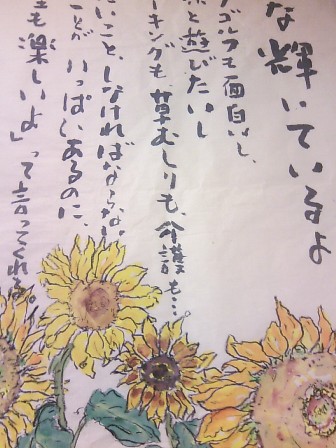 な輝いているよ
ゴルフも面白いし、
と遊びたいし
ーキングも、草むしりも、介護も…
いこと、しなければならない
ことが、いっぱいあるのに、
も楽しいよ」って言ってくれる。